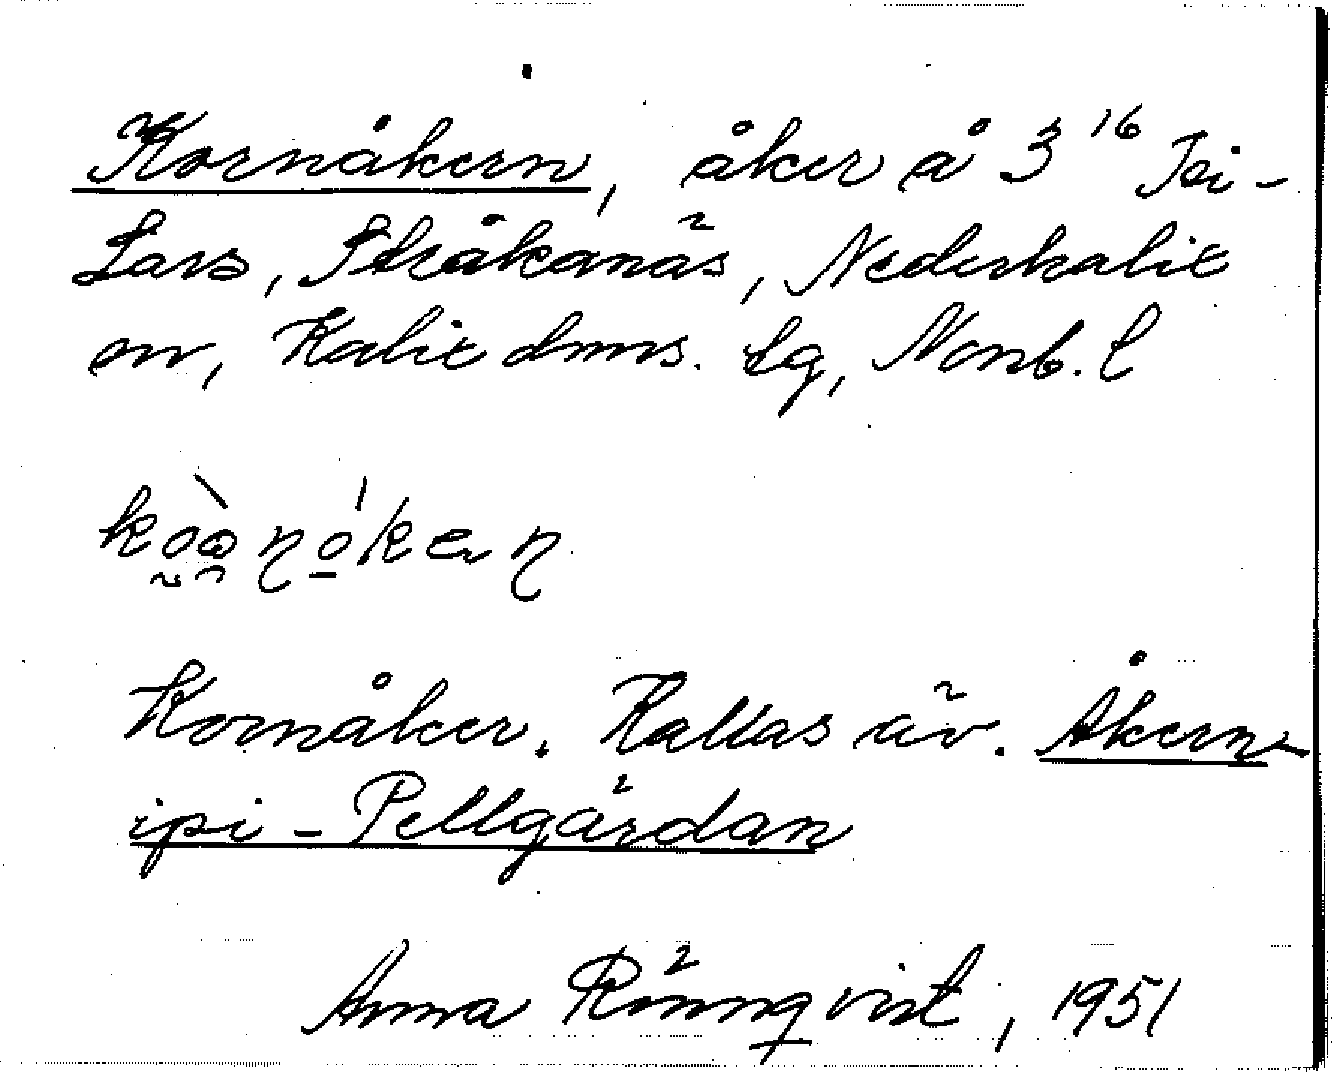 Kornåkern, åker å 3¹⁶ Joi-
Lars, Stråkanäs, Nederkalix
sn, Kalix dmrs. lg, Norrb. l
Kornåker. Kallas äv. Åkern-
ipi-Pellgärdan
Anna Rönnqvist, 1951